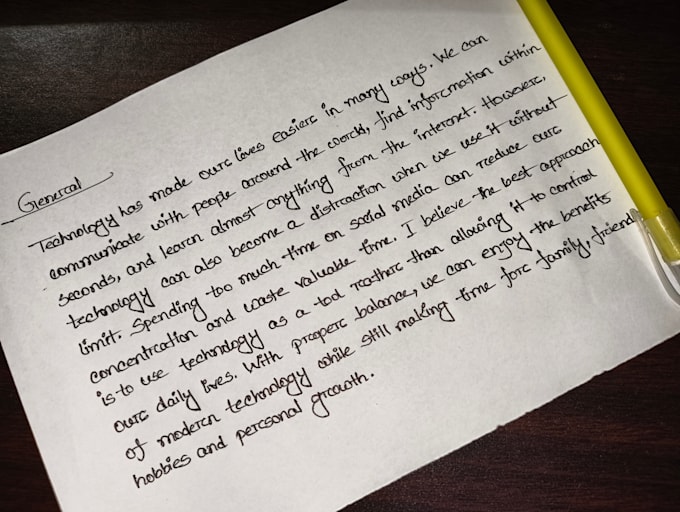 General
Technology has made our lives easier in many ways. We can
communicate with people around the world, find information within
seconds, and learn almost anything from the internet. However,
technology can also become a distraction when we use it without
limit. Spending too much time on social media can reduce our
concentration and waste valuable time. I believe the best approach
is to use technology as a tool rather than allowing it to control
our daily lives. With proper balance, we can enjoy the benefits
of modern technology while still making time for family, friend
hobbies and personal growth.